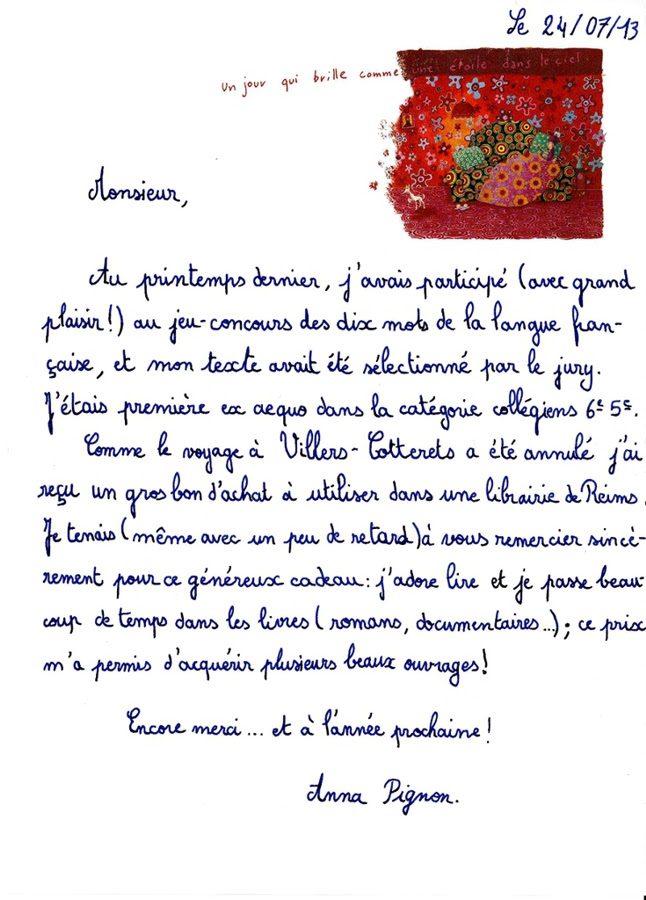 Le 24/07/13
un jour qui brille comme une étoile dans le ciel
Monsieur,
Au printemps dernier, j'avais participé (avec grand
plaisir!) au jeu-concours des dix mots de la langue fran-
çaise, et mon texte avait été sélectionné par le jury.
J'étais première ex aequo dans la catégorie collégiens 6e 5e.
Comme le voyage à Villers-Cotterets a été annulé j'ai
reçu un gros bon d'achat à utiliser dans une librairie de Reims.
Je tenais (même avec un peu de retard) à vous remercier sincè-
rement pour ce généreux cadeau : j'adore lire et je passe beau-
coup de temps dans les livres (romans, documentaires...) ; ce prix
m'a permis d'acquérir plusieurs beaux ouvrages!
Encore merci... et à l'année prochaine!
Anna Pignon.